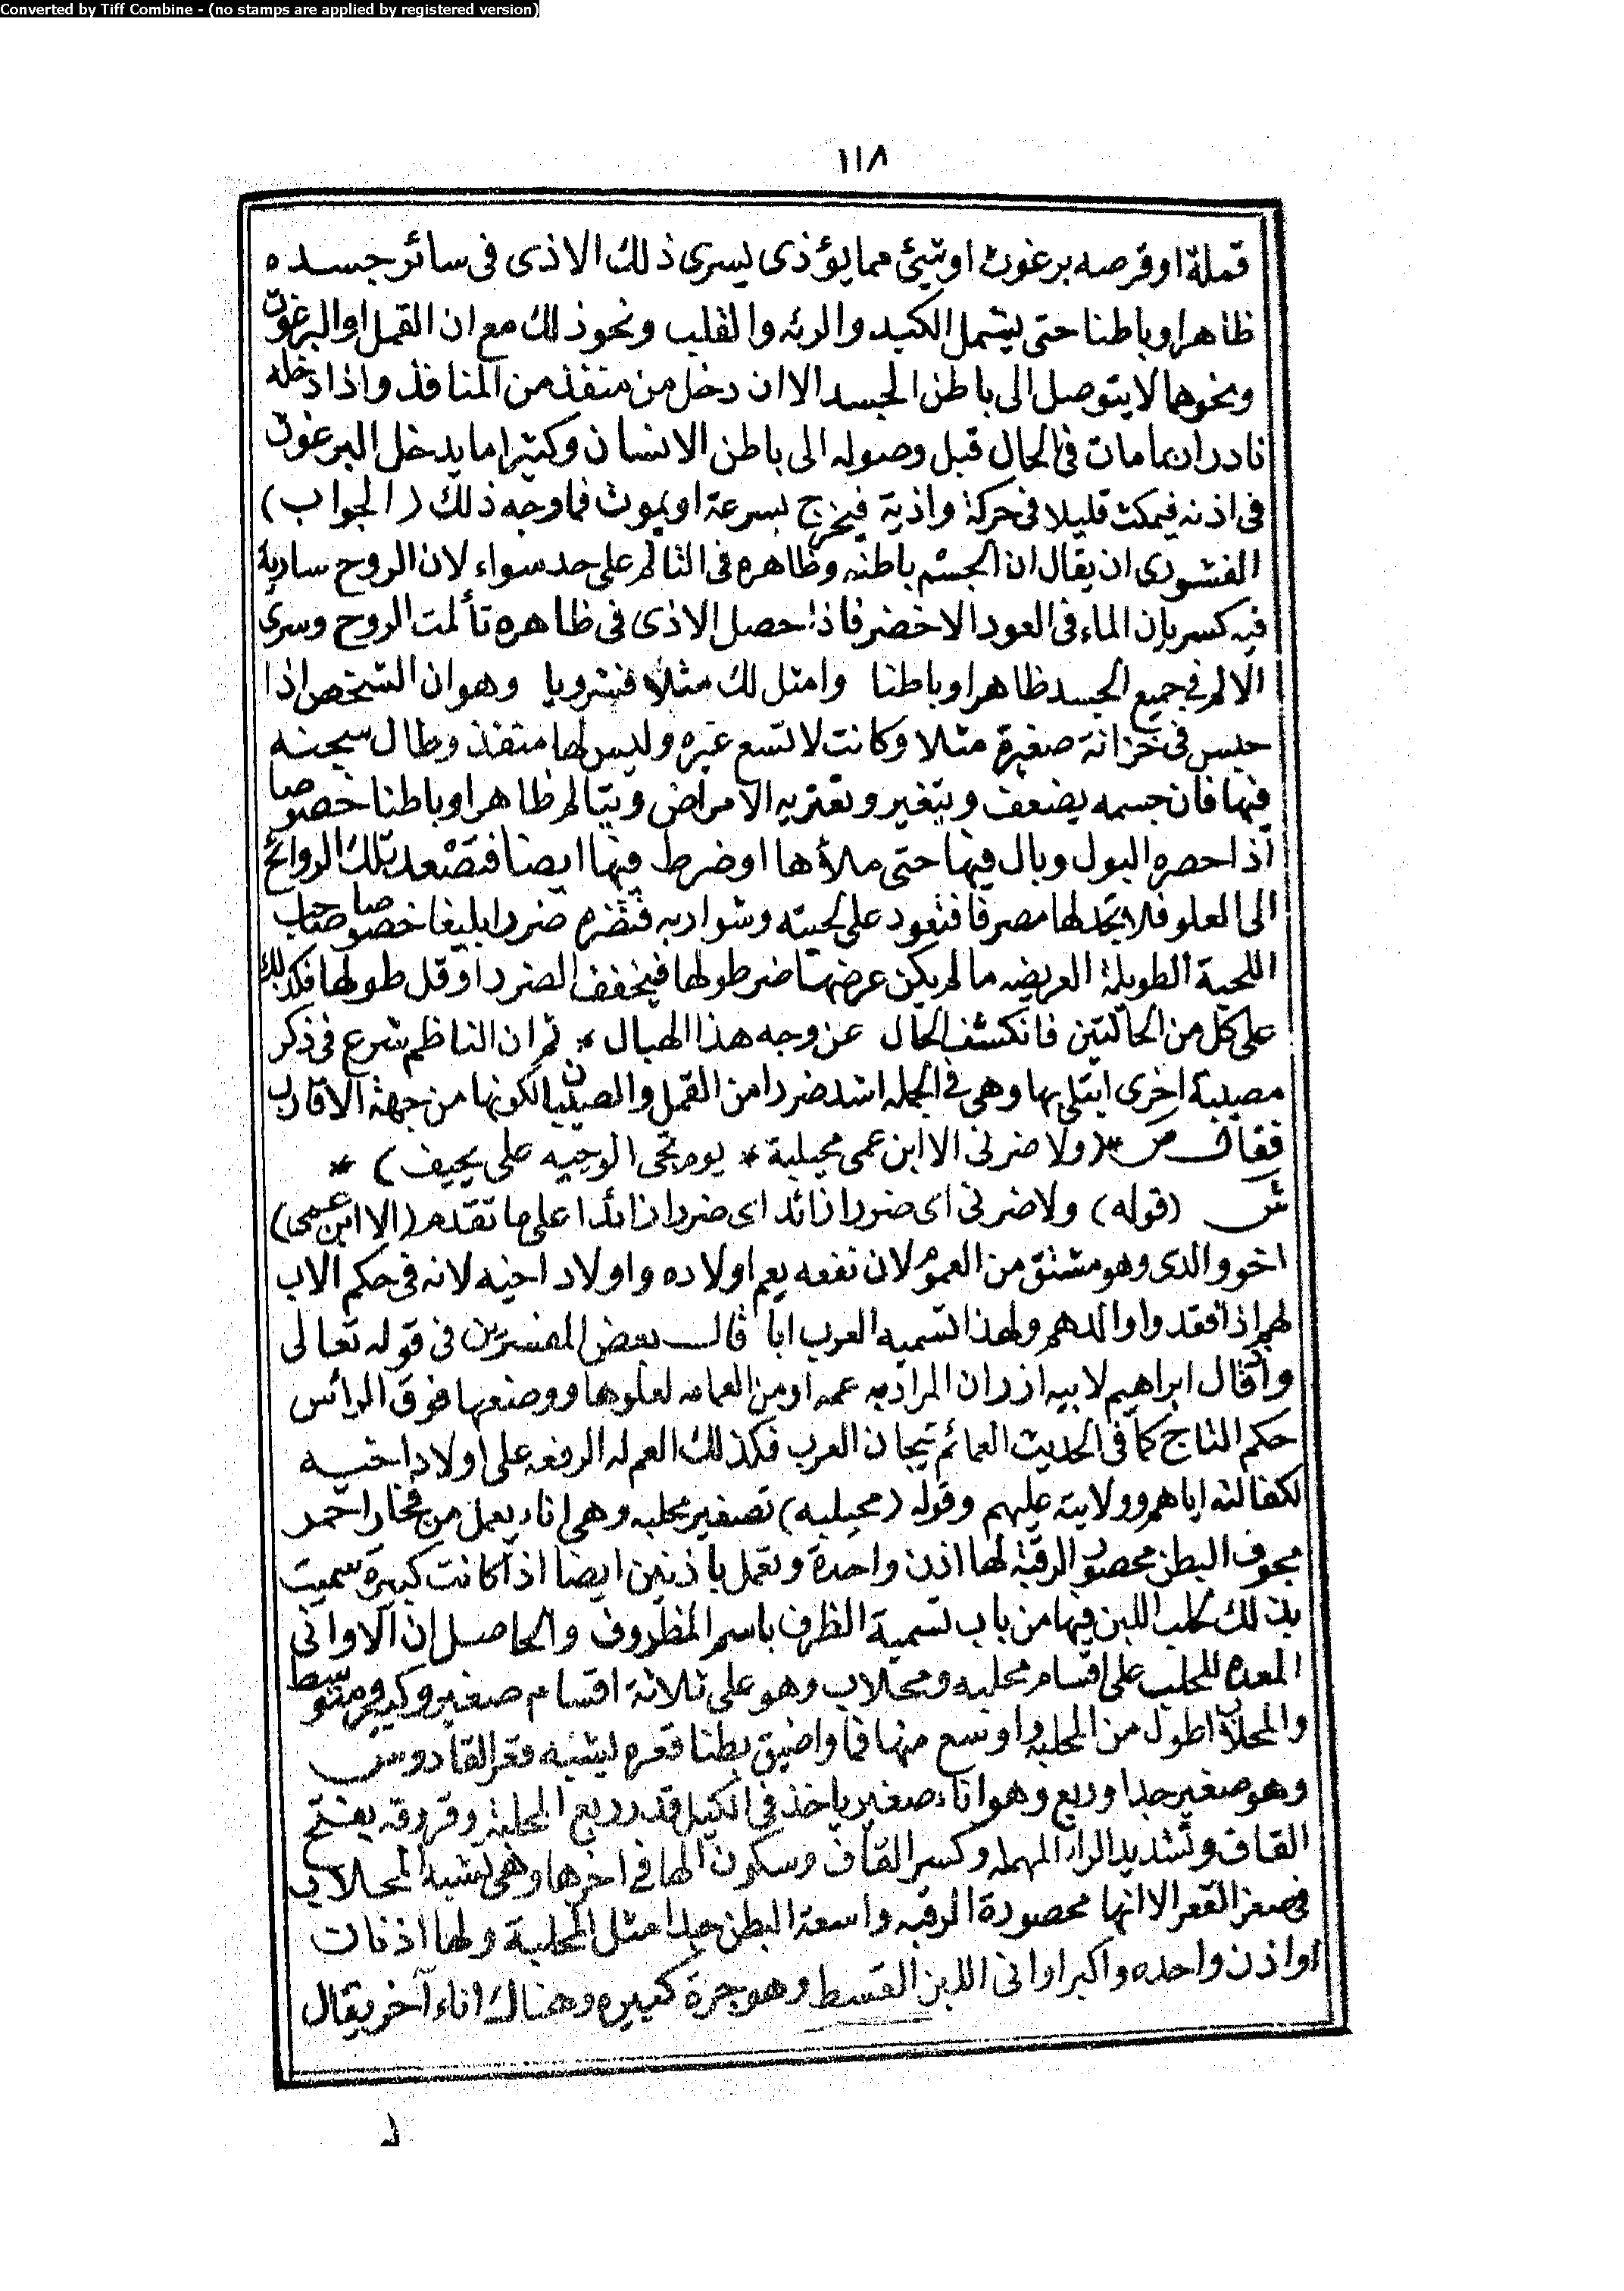 Converted by Tiff Combine - (no stamps are applied by registered version)
١١٨
قملة او قرصه برغوث او شئ مما يؤذى يسرى ذلك الاذى فى سائر جسده
ظاهرا وباطنا حتى يشمل الكبد والرئه والقلب ونحو ذلك مع ان القمل او البرغوث
ونحوهما لا يتوصل الى باطن الجسد الا ان دخل من منفذ من المنافذ واذا دخله
نادرا ربما مات فى الحال قبل وصوله الى باطن الانسان وكثيرا ما يدخل البرغوث
فى اذنه فيمكث قليلا فى حركة واذية فيخرج بسرعة او يموت فما وجه ذلك (الجواب)
الفشورى ان يقال ان الجسم باطنه وظاهره فى التألم على حد سواء لان الروح سارية
فيه كسريان الماء فى العود الاخضر فاذا حصل الاذى فى ظاهره تألمت الروح وسرى
الالم فى جميع الجسد ظاهرا وباطنا وامثل لك مثلا فشرويا وهو ان الشخص اذا
حبس فى خزانة صغيرة مثلا وكانت لا تسع غيره وليس لها منفذ وطال سجنه
فيها فان جسمه يضعف ويتغير وتعتريه الامراض ويتالم ظاهرا وباطنا خصوصا
اذا حصره البول وبال فيها حتى ملأها او ضرط فيها ايضا فتصعد تلك الروائح
الى العلو فلا تجد لها مصرفا فتعود على لحيته وشواربه فتضره ضررا بليغا خصوصا صاحب
اللحية الطويلة العريضه ما لم يكن عرضها ضر طولها فيخفف الضرر او قل طولها فكذلك
على كل من الحالتين فانكشف الحال عن وجه هذا الهبال * ثم ان الناظم شرع فى ذكر
مصيبة اخرى ابتلى بها وهى فى الجمله اشد ضررا من القمل والصيبان لكونها من جهة الاقارب
فقال ص *(ولا ضرنى الا ابن عمى محيلبة * يوم تجى الوجيه على يحيف) *
ش (قوله) ولا ضرنى اى ضررا زائد اى ضررا زائدا على ما تقدم (الا ابن عمى)
اخو والدى وهو مشتق من العموم لان نفعه يعم اولاده واولاد اخيه لانه فى حكم الاب
لهم اذا فقدوا والدهم ولهذا تسميه العرب ابا قال بعض المفسرين فى قوله تعالى
واذ قال ابراهيم لابيه ازر ان المراد به عمه او من العمامه لعلوها ووضعها فوق الرأس
حكم التاج كما فى الحديث العمائم تيجان العرب فكذلك العم له الرفعه على اولاد اخيه
لكفالته اياهم وولايته عليهم وقوله (محيلبه) تصغير محلبه وهى اناء يعمل من فخار احمر
مجوف البطن محصور الرقبة لها اذن واحدة وتعمل باذنين ايضا اذا كانت كبيرة سميت
بذلك لحلب اللبن فيها من باب تسمية الظرف باسم المظروف والحاصل ان الاوانى
المعده للحلب على اقسام محلبه ومحلاب وهو على ثلاثة اقسام صغير وكبير ومتوسط
والمحلاب اطول من المحلبه واوسع منها فما واضيق بطنا قعره ليشبه قعر القادوس
وهو صغير جدا وربع وهو اناء صغير ياخذ فى الكيل قدر ربع المحلبة وقروقه بفتح
القاف وتشديد الراء المهمله وكسر القاف وسكون الها فى اخرها وهى تشبه المحلاب
فى صغر القعر الا انها محصورة الرقبه واسعة البطن جدا مثل المحلبة ولها اذنان
او اذن واحده واكبر اوانى اللبن القسط وهو جرة كبيره وهناك اناء آخر يقال